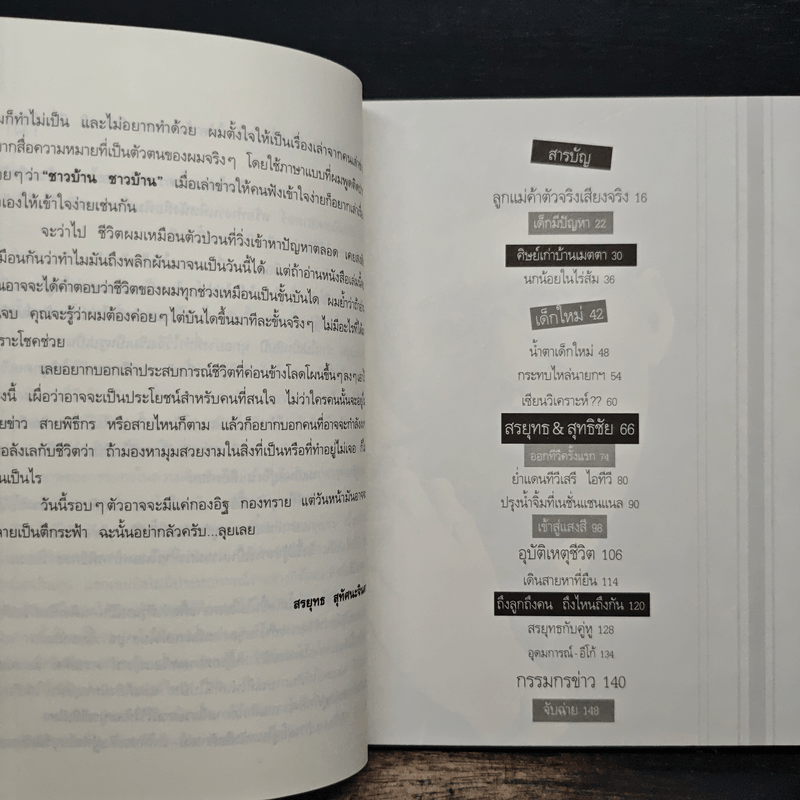 ก็ทำไม่เป็น และไม่อยากทำด้วย ผมตั้งใจให้เป็นเรื่องเล่าจากคนเล่า
ากสื่อความหมายที่เป็นตัวตนของผมจริงๆ โดยใช้ภาษาแบบที่ผมพูด
อยๆว่า "ชาวบ้าน ชาวบ้าน" เมื่อเล่าข่าวให้คนฟังเข้าใจง่ายก็อยากเล่า
องให้เข้าใจง่ายเช่นกัน
จะว่าไป ชีวิตผมเหมือนตัวป่วนที่วิ่งเข้าหาปัญหาตลอด
หมือนกันว่าทำไมมันถึงพลิกผันมาจนเป็นวันนี้ได้ แต่ถ้าอ่านหนังสือเล่ม
อาจจะได้คำตอบว่าชีวิตของผมทุกช่วงเหมือนเป็นขั้นบันได ผมย้ำว่าถ้า
จบ คุณจะรู้ว่าผมต้องค่อยๆไต่บันไดขึ้นมาทีละขั้นจริงๆ ไม่มีอะไรที่
ราะโชคช่วย
เลยอยากบอกเล่าประสบการณ์ชีวิตที่ค่อนข้างโลดโผนขึ้นๆลงๆ
งนี้ เผื่อว่าอาจจะเป็นประโยชน์สำหรับคนที่สนใจ ไม่ว่าใครคนนั้นจะอยู่
ยข่าว สายพิธีกร หรือสายไหนก็ตาม แล้วก็อยากบอกคนที่อาจจะกำลัง
อลังเลกับชีวิตว่า ถ้ามองหามุมสวยงามในสิ่งที่เป็นหรือที่ทำอยู่ไม่เจอ
นเป็นไร
วันนี้รอบๆตัวอาจจะมีแค่กองอิฐ กองทราย แต่วันหน้ามันอาจจะ
ลายเป็นตึกระฟ้า ฉะนั้นอย่ากลัวครับ...ลุยเลย
สรยุทธ สุทัศนะจินดา
สารบัญ
ลูกแม่ค้าตัวจริงเสียงจริง 16
เด็กมีปัญหา 22
ศิษย์เก่าบ้านเมตตา 30
นกน้อยในไร่ส้ม 36
เด็กใหม่ 42
น้ำตาเด็กใหม่ 48
กระทบไหล่นายกฯ 54
เซียนวิเคราะห์?? 60
สรยุทธ & สุทธิชัย 66
ออกทีวีครั้งแรก 74
ย่ำแดนทีวีเสรี ไอทีวี 80
ปรุงน้ำจิ้มที่เนชั่นแชนแนล 90
เข้าสู่แสงสี 98
อุบัติเหตุชีวิต 106
เดินสายหาที่ยืน 114
ถึงลูกถึงคน ถึงไหนถึงกัน 120
สรยุทธกับคู่หู 128
อุดมการณ์-อีโก้ 134
กรรมกรข่าว 140
จับฉ่าย 148